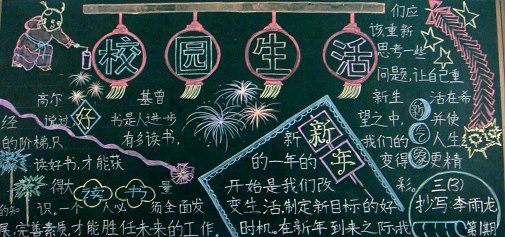 校园生活
高尔 基曾
经 说过 好
书是人进步
的阶梯,只 有多读书,
读好书,才能获
得大 读书 量
的知 识。一个人必须全面发
展,完善素质,才能胜任未来的工作.
新年
新
的一年的
开始是我们改
变生活,制定新目标的好
时机。在新年到来之际,我
们应
该重新
思考一些
问题,让自己重
新生 活在希
望之中, 并使
我们的 人生
变得 更精
彩。
三(3)
抄写:李雨龙
第1期